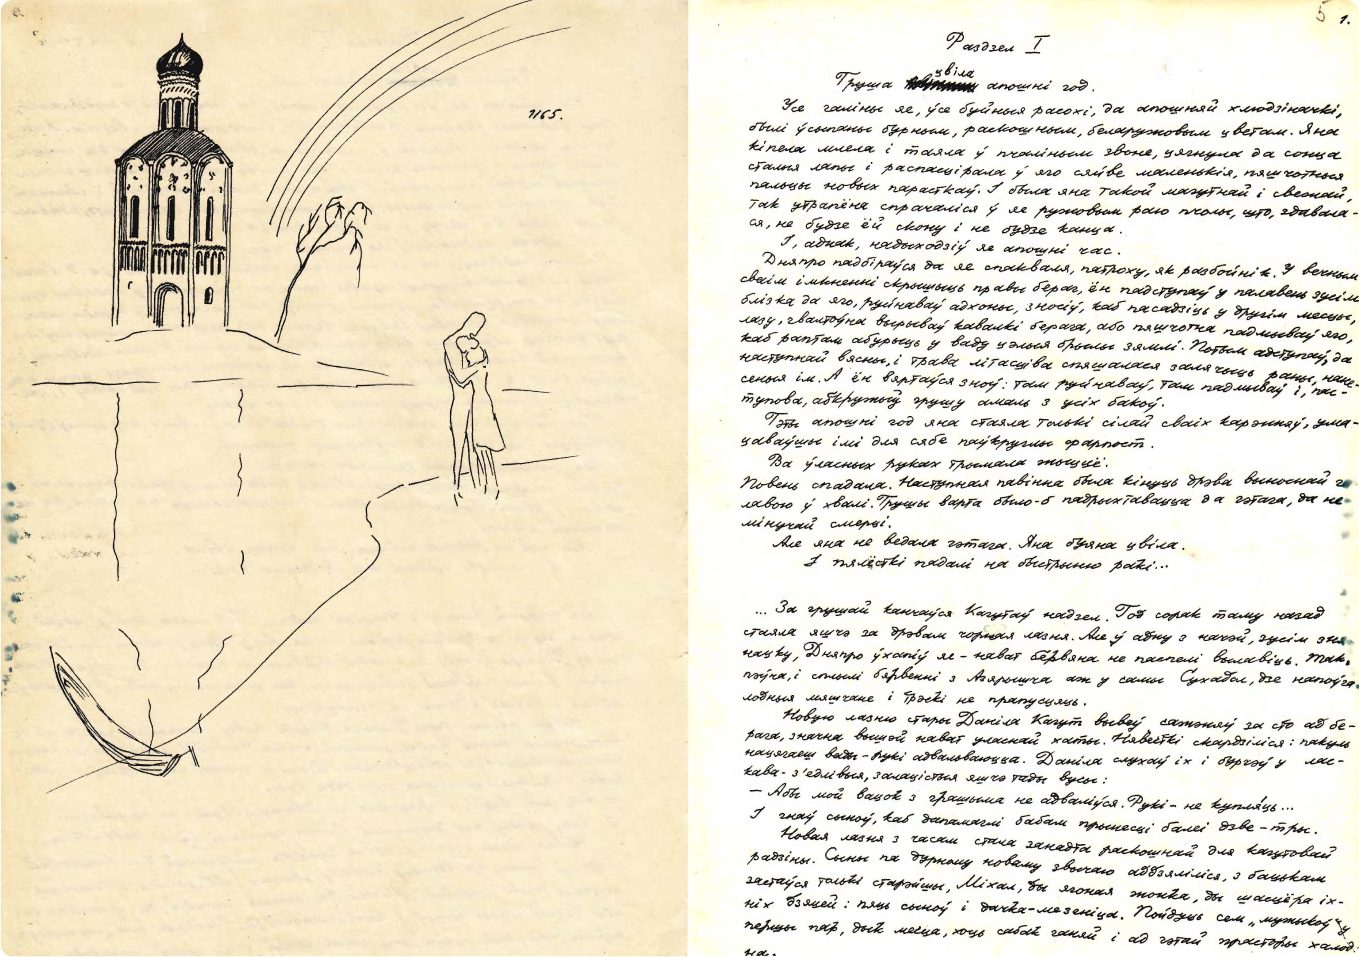 1165.
5
1.
Раздзел I
цвіла
Груша апошні год.
Усе галіны яе, ўсе буйныя расохі, да апошняй хлюдзіначкі,
былі ўсыпаны бурным, раскошным, беларужовым цветам. Яна
кіпела млела і таяла ў пчаліным звоне, цягнула да сонца
сталыя лапы і распасцірала ў яго сяйве маленькія, пяшчотныя
пальцы новых парасткаў. І была яна такой магутнай і свежай,
так утрапёна спрачаліся ў яе ружовым раю пчолы, што, здавала-
ся, не будзе ёй скону і не будзе канца.
І, аднак, надыходзіў яе апошні час.
Дняпро падбіраўся да яе спакваля, патроху, як разбойнік. У вечным
сваім імкненні скрышыць правы бераг, ён падступаў у палавень зусім
блізка да яго, руйнаваў адхоны, зносіў, каб пасадзіць у другім месцы,
лазу, гвалтоўна вырываў кавалкі берага, або пяшчотна падмываў яго,
каб раптам абурыць у ваду цэлыя брылы зямлі. Потым адступаў, да
наступнай вясны, і трава літасціва спяшалася залячыць раны, нане-
сеныя ім. А ён вяртаўся зноў: там руйнаваў, там падмываў і, пас-
тупова, абкружыў грушу амаль з усіх бакоў.
Гэты апошні год яна стаяла толькі сілай сваіх карэнняў, ума-
цаваўшы імі для сябе паўкруглы фарпост.
Ва ўласных руках трымала жыццё.
Повень спадала. Наступная павінна была кінуць дрэва выноснай га-
лавою ў хвалі. Грушы варта было-б падрыхтавацца да гэтага, да не-
мінучай смерці.
Але яна не ведала гэтага. Яна буяна цвіла.
І пялёсткі падалі на быстрыню ракі...
... За грушай канчаўся Кагутаў надзел. Год сорак таму назад
стаяла яшчэ за дрэвам чорная лазня. Але ў адну з начэй, зусім зня-
нацку, Дняпро ўхапіў яе - нават бервяна не паспелі вылавіць. Так,
пэўна, і сплылі бярвенні з Азярышча аж у самы Сухадол, дзе напоўга-
лодныя мяшчане і трэскі не прапусцяць.
Новую лазню стары Даніла Кагут вывеў сажэняў за сто ад бе-
рага, значна вышэй нават уласнай хаты. Нявесткі скардзіліся: пакуль
нацягаеш вады - рукі адвальваюцца. Даніла слухаў іх і бурчэў у лас-
кава-з'едлівыя, залацістыя яшчэ тады вусы:
— Абы мой вацок з грашыма не адваліўся. Рукі - не купляць...
І гнаў сыноў, каб дапамаглі бабам прынесці балеі дзве - тры.
Новая лазня з часам стала занадта раскошнай для кагутовай
радзіны. Сыны па дурному новаму звычаю аддзяліліся, з бацькам
застаўся толькі старэйшы, Міхал, ды ягоная жонка, ды шасцёра іх-
ніх дзяцей: пяць сыноў і дачка-мезеніца. Пойдуць сем „мужыкоў“ у
першы пар, дык месца, хоць сабак ганяй і ад гэтай прасторы халод-
на.